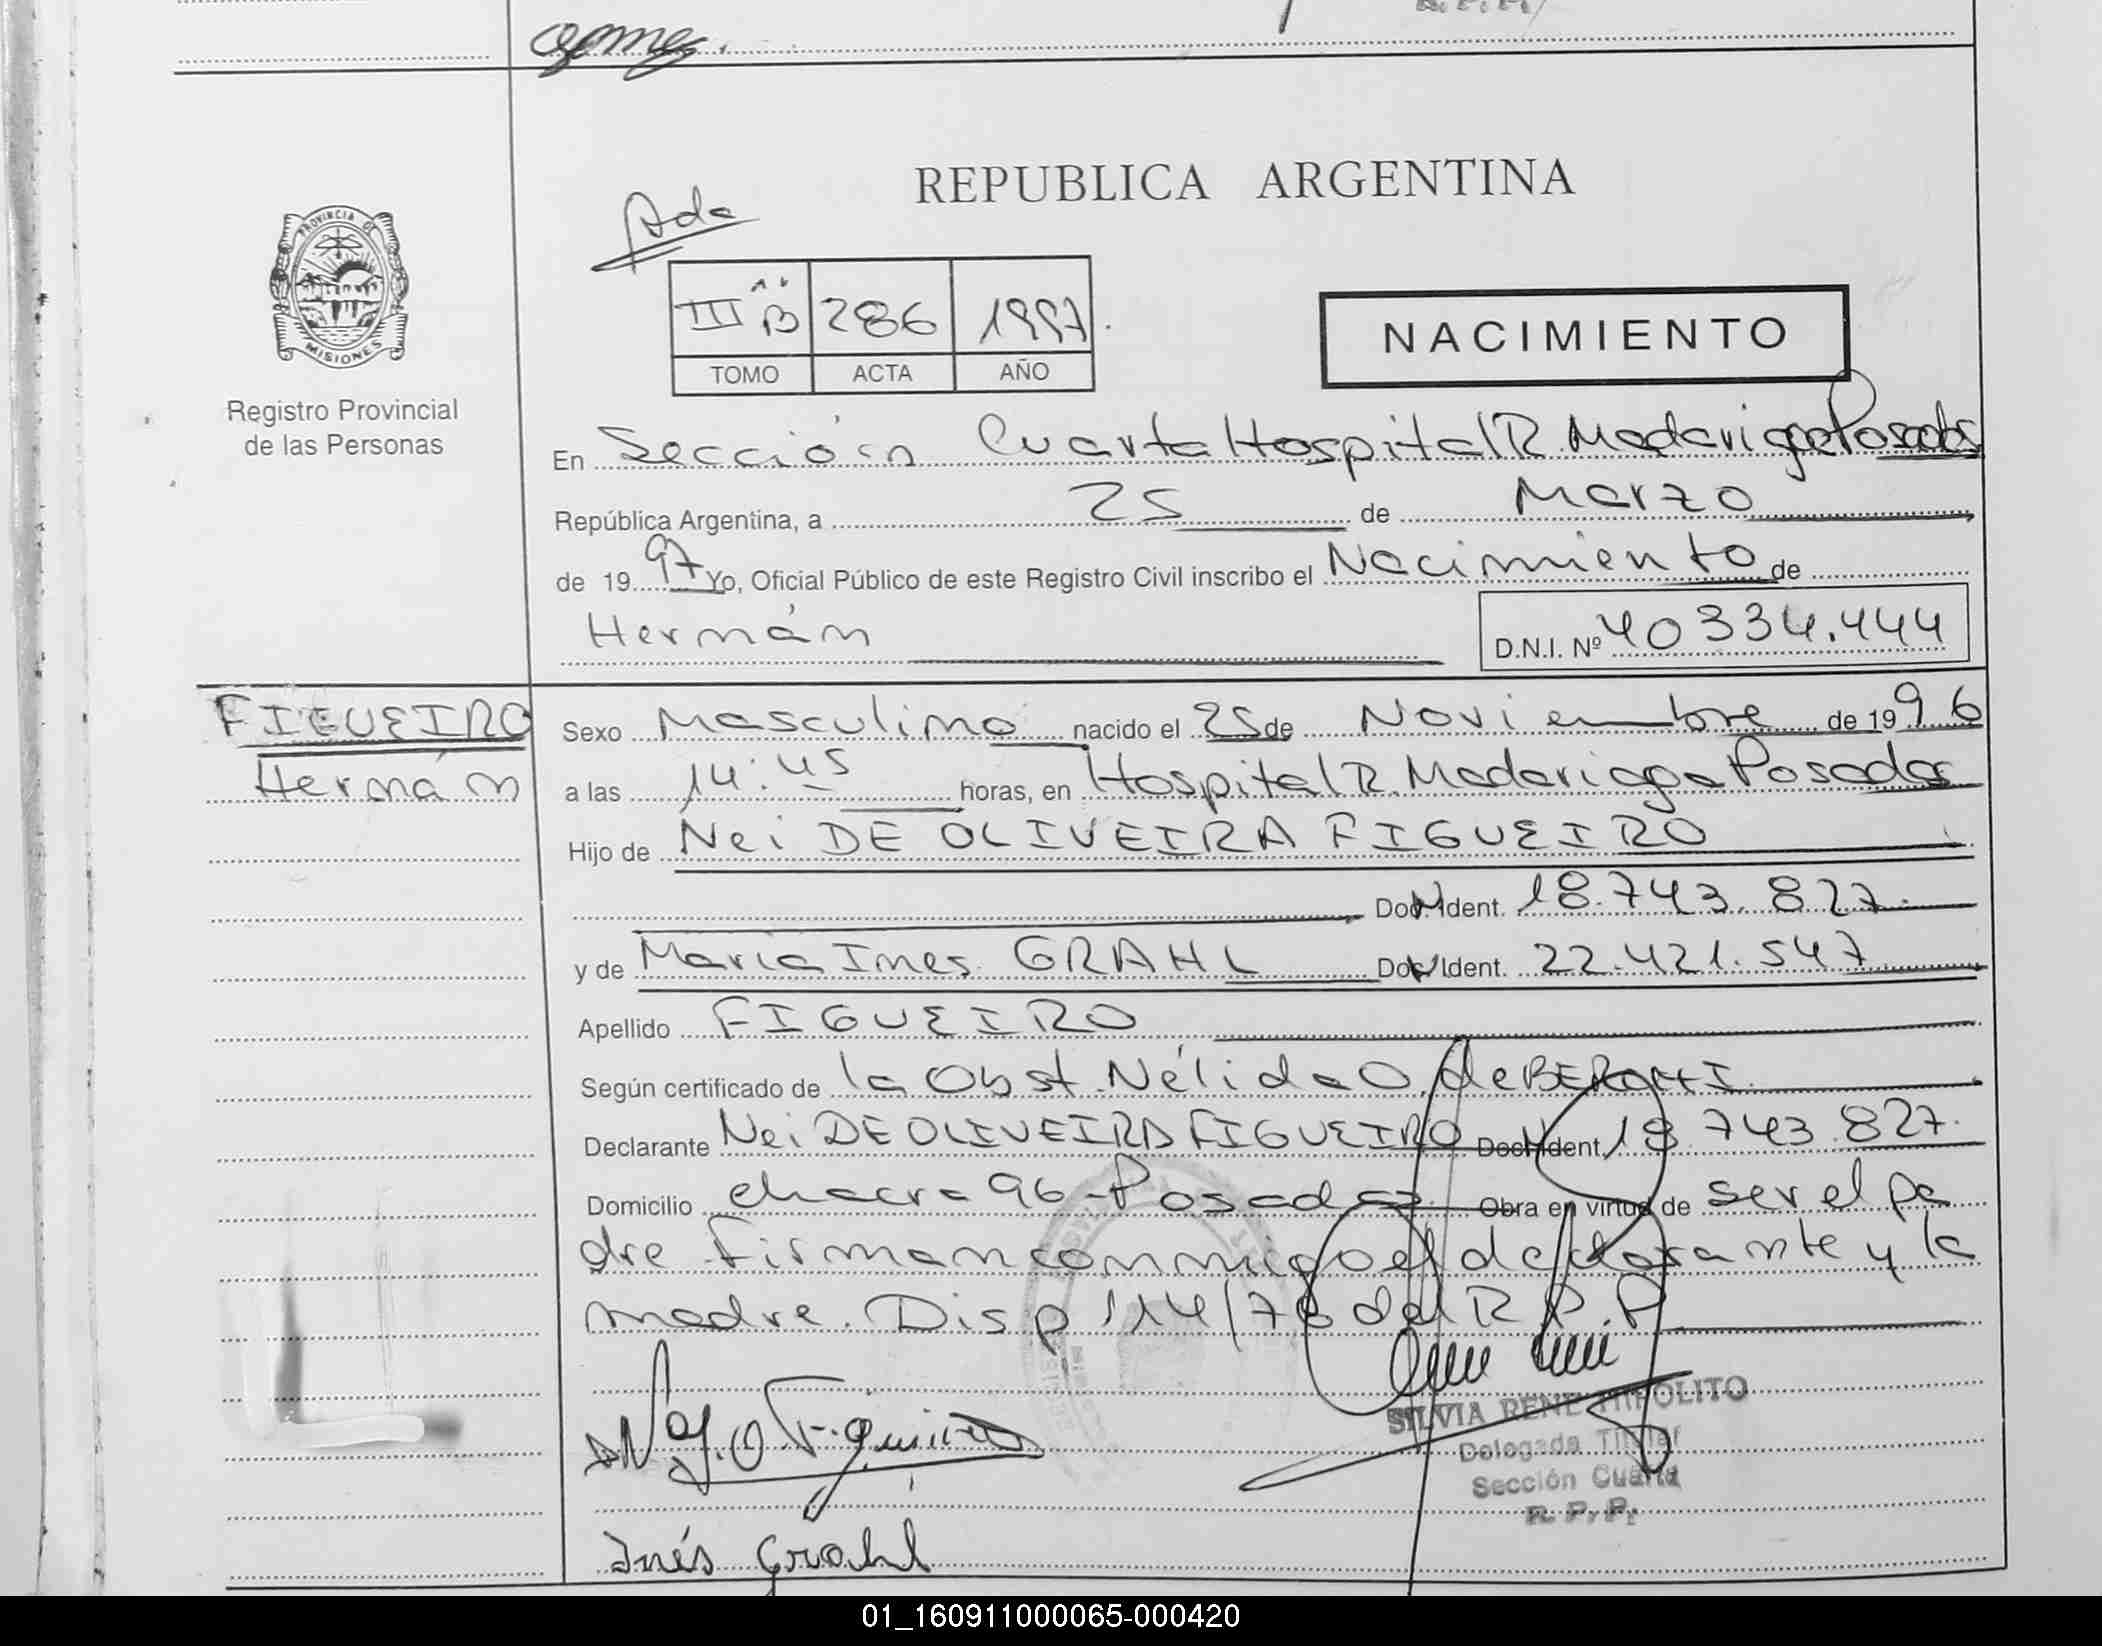 Ada
REPUBLICA ARGENTINA
PROVINCIA DE
MISIONES
Registro Provincial
de las Personas
III "B" 286 1997.
TOMO ACTA AÑO
NACIMIENTO
En Sección Cuarta Hospital R. Madariaga Posadas
República Argentina, a 25 de Marzo
de 1997 Yo, Oficial Público de este Registro Civil inscribo el Nacimiento de
Hermán
D.N.I. Nº 40334.444
FIGUEIRO
Hermán
Sexo Masculino nacido el 25 de Noviembre de 1996
a las 14:45 horas, en Hospital R. Madariaga Posadas
Hijo de Nei DE OLIVEIRA FIGUEIRO
Doc. Ident. 18.743.827.
y de Maria Ines GRAHL Doc. Ident. 22.421.547
Apellido FIGUEIRO
Según certificado de la Obst. Nélida O. de
Declarante Nei DE OLIVEIRA FIGUEIRO Doc. Ident. 18.743.827.
Domicilio chacra 96-Posadas Obra en virtud de ser el pa
dre firman conmigo el declarante y la
madre. Disp 114/78 del R.P.P
SILVIA RENE HIPOLITO
Delegada Titular
Sección Cuarta
R. P. P.
Inés Grahl
01_160911000065-000420